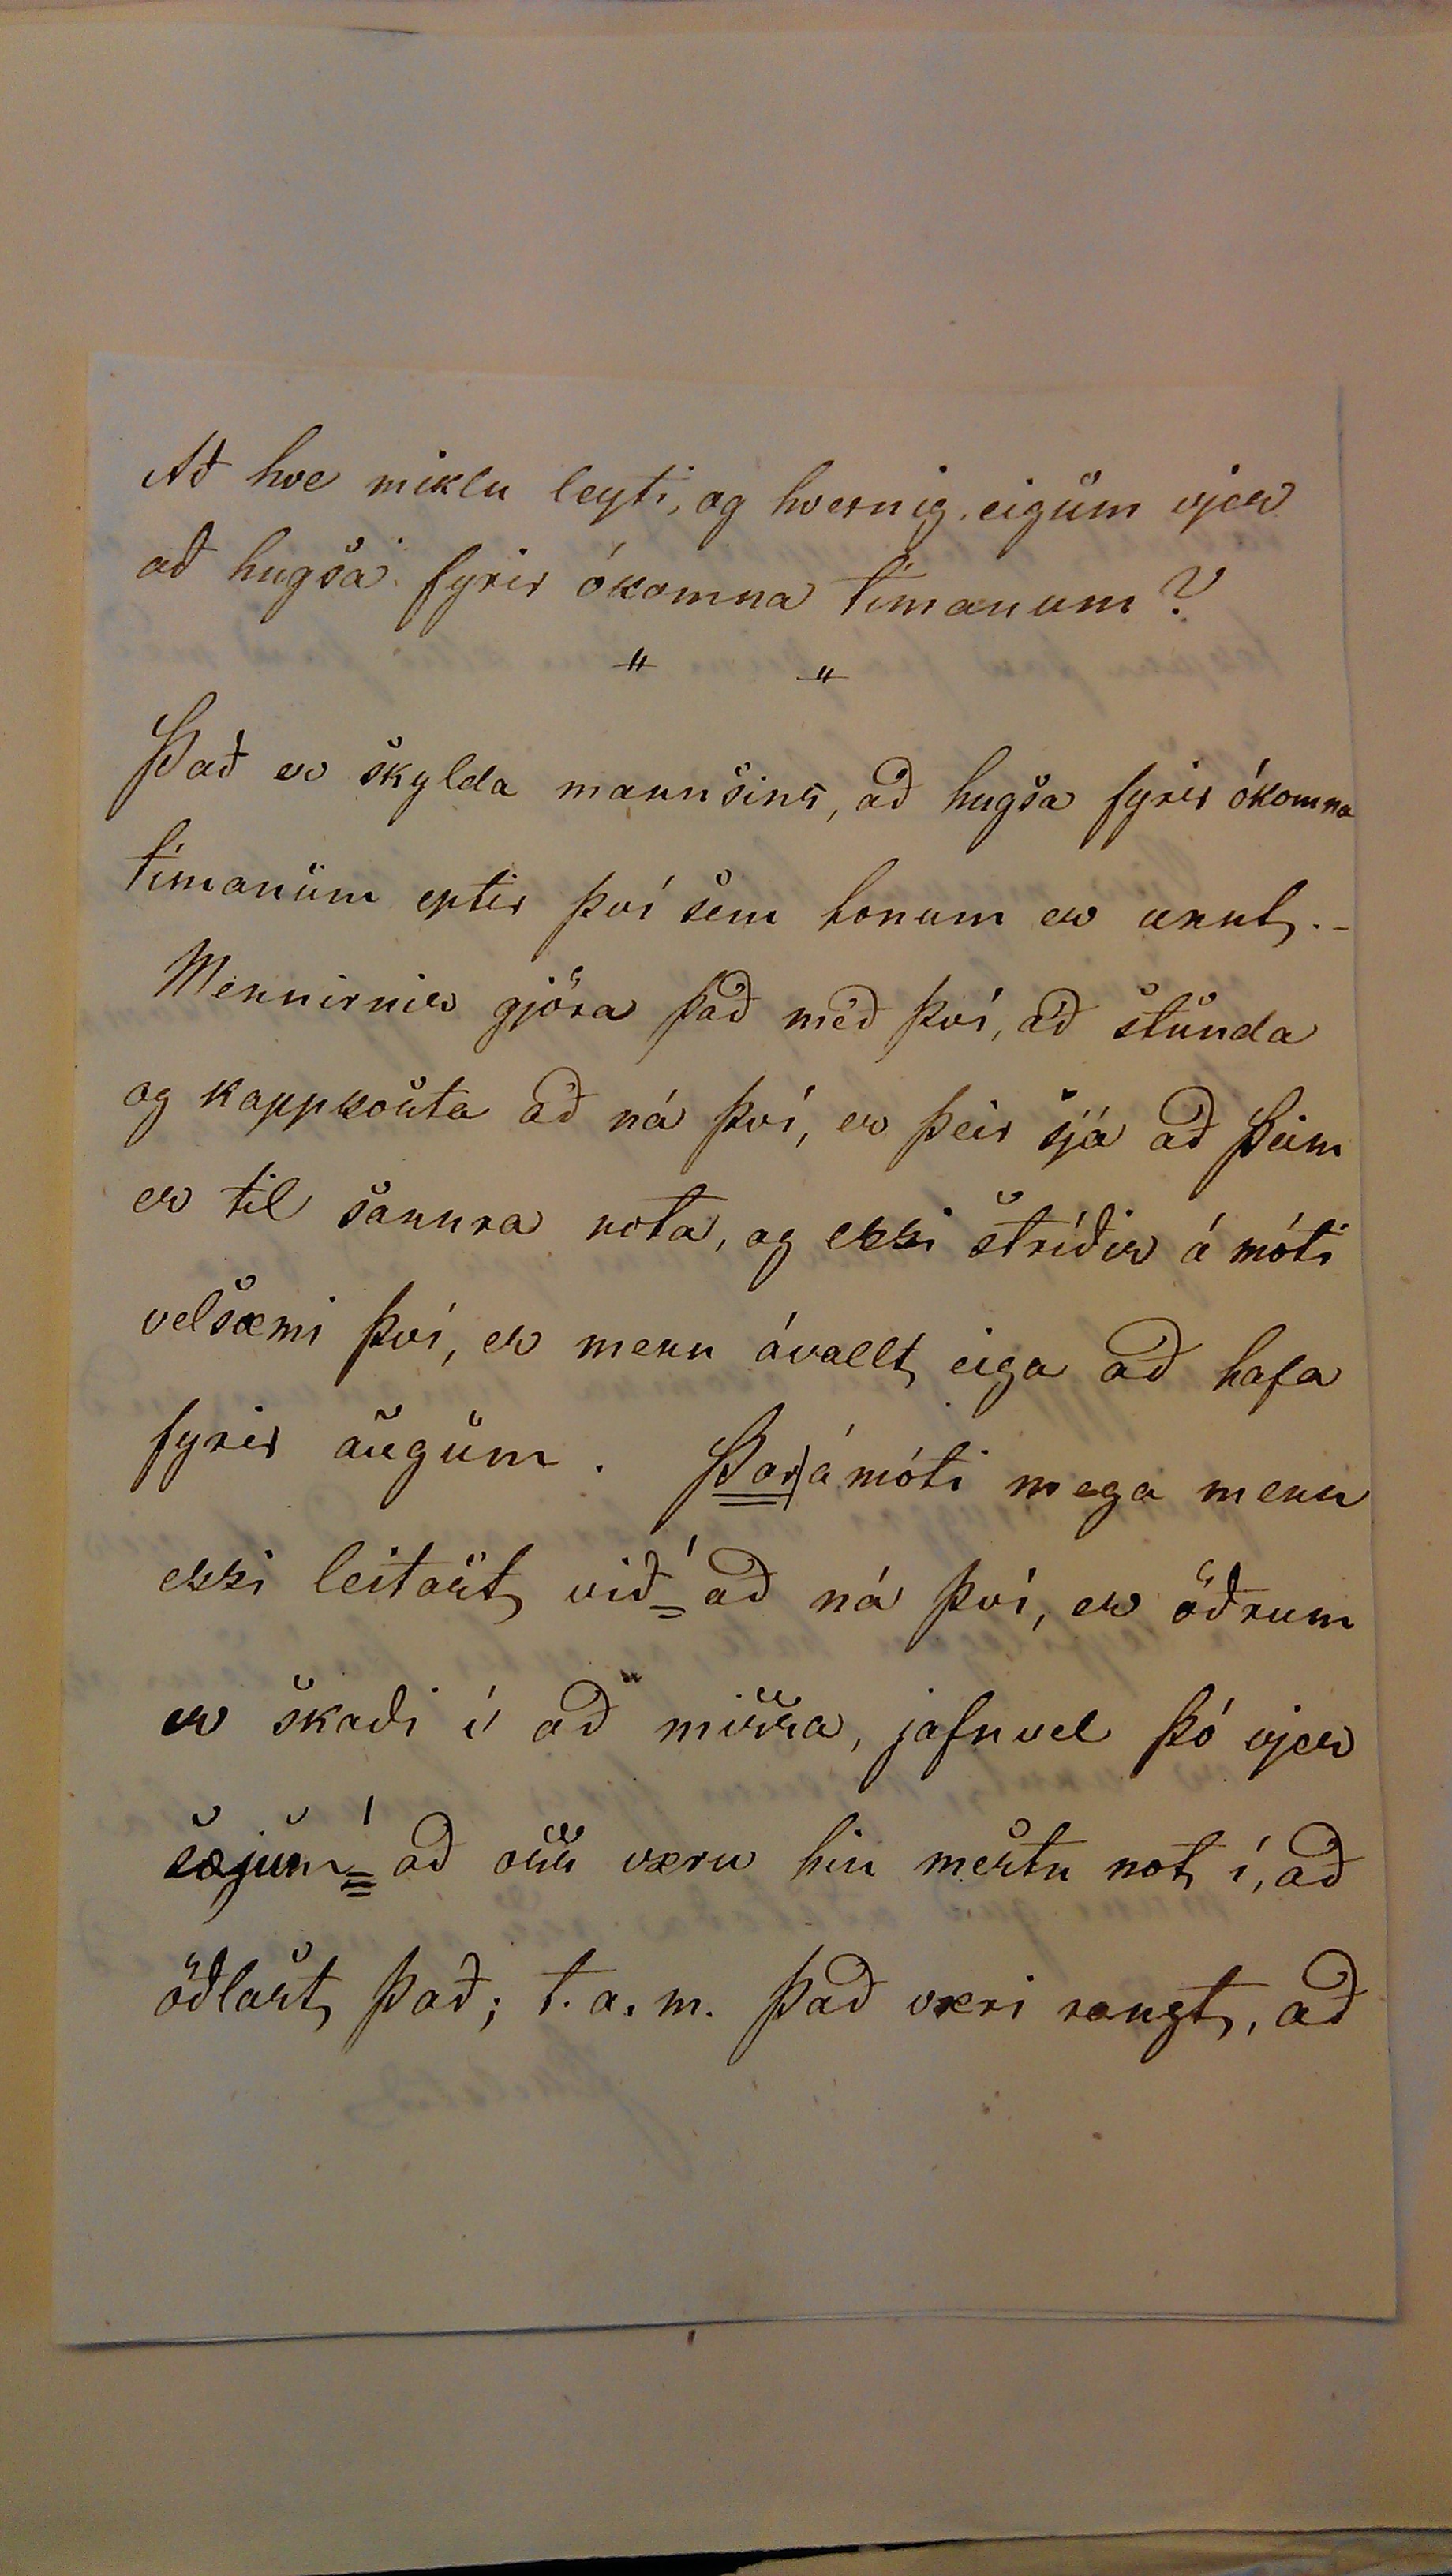 Að hve miklu leyti, og hvernig, eigum vjer
að hugsa fyrir ókomna tímanum?
" "
Það er skylda mannsins, að hugsa fyrir ókomna
tímanum eptir því sem honum er unnt.-
Mennirnir gjöra það með því, að stunda
og kappkosta að ná því, er þeir sjá að þeim
er til sannra nota, og ekki stríðir á móti
velsæmi því, er menn ávallt eiga að hafa
fyrir augum. Þar|á móti mega menn
ekki leitast við að ná því, er öðrum
er skaði í að missa, jafnvel þó vjer
sæjum að oss væru hin mestu not í, að
öðlast það; t.a.m. það væri rangt, að